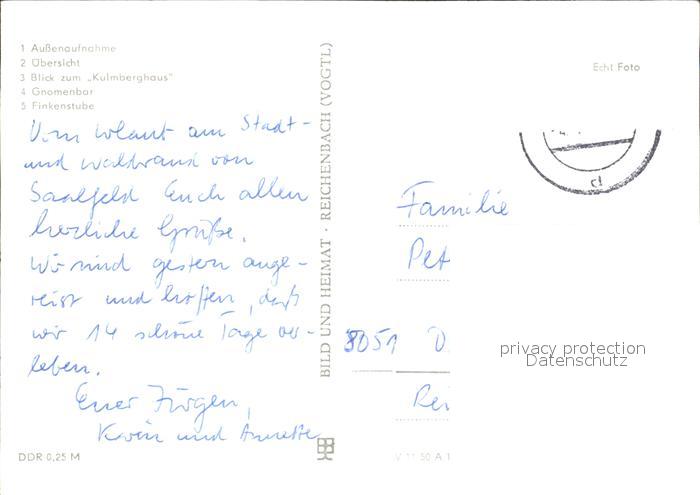 1 Außenaufnahme
2 Übersicht
3 Blick zum „Kulmberghaus"
4 Gnomenbar
5 Finkenstube
Echt Foto
Vom Urlaub am Stadt-
und Waldrand von
Saalfeld Euch allen
herzliche Grüße.
Wir sind gestern ange-
reist und hoffen, daß
wir 14 schöne Tage ver-
leben.
Euer Jürgen,
Karin und Annette
DDR 0,25 M
BILD UND HEIMAT · REICHENBACH (VOGTL)
Familie
Pet
8051 D.
Rei
V 11 50 A 1
privacy protection
Datenschutz